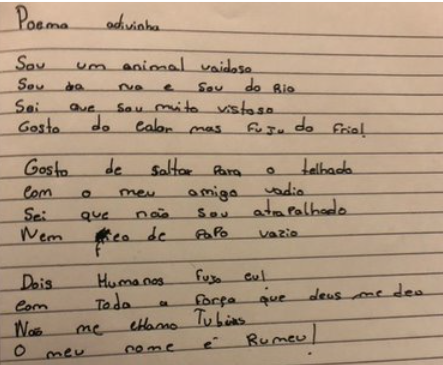 Poema adivinha
Sou um animal vaidoso
Sou da rua e sou do Rio
Sei que sou muito vistoso
Gosto do calor mas fujo do frio!
Gosto de saltar para o telhado
Com o meu amigo vadio
Sei que não sou atrapalhado
Nem fico de papo vazio
Dois Humanos fujo eu!
Com toda a força que deus me deu
Não me chamo Tubias
O meu nome é Rumeu!